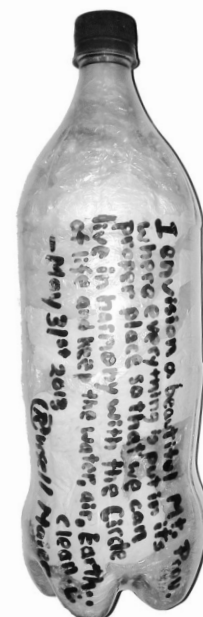 I envision a beautiful Mt.
where everything is put in its
proper place so that we can
live in harmony with the Circle
of life and keep the water, air, Earth..
clean
- May 31st 2013